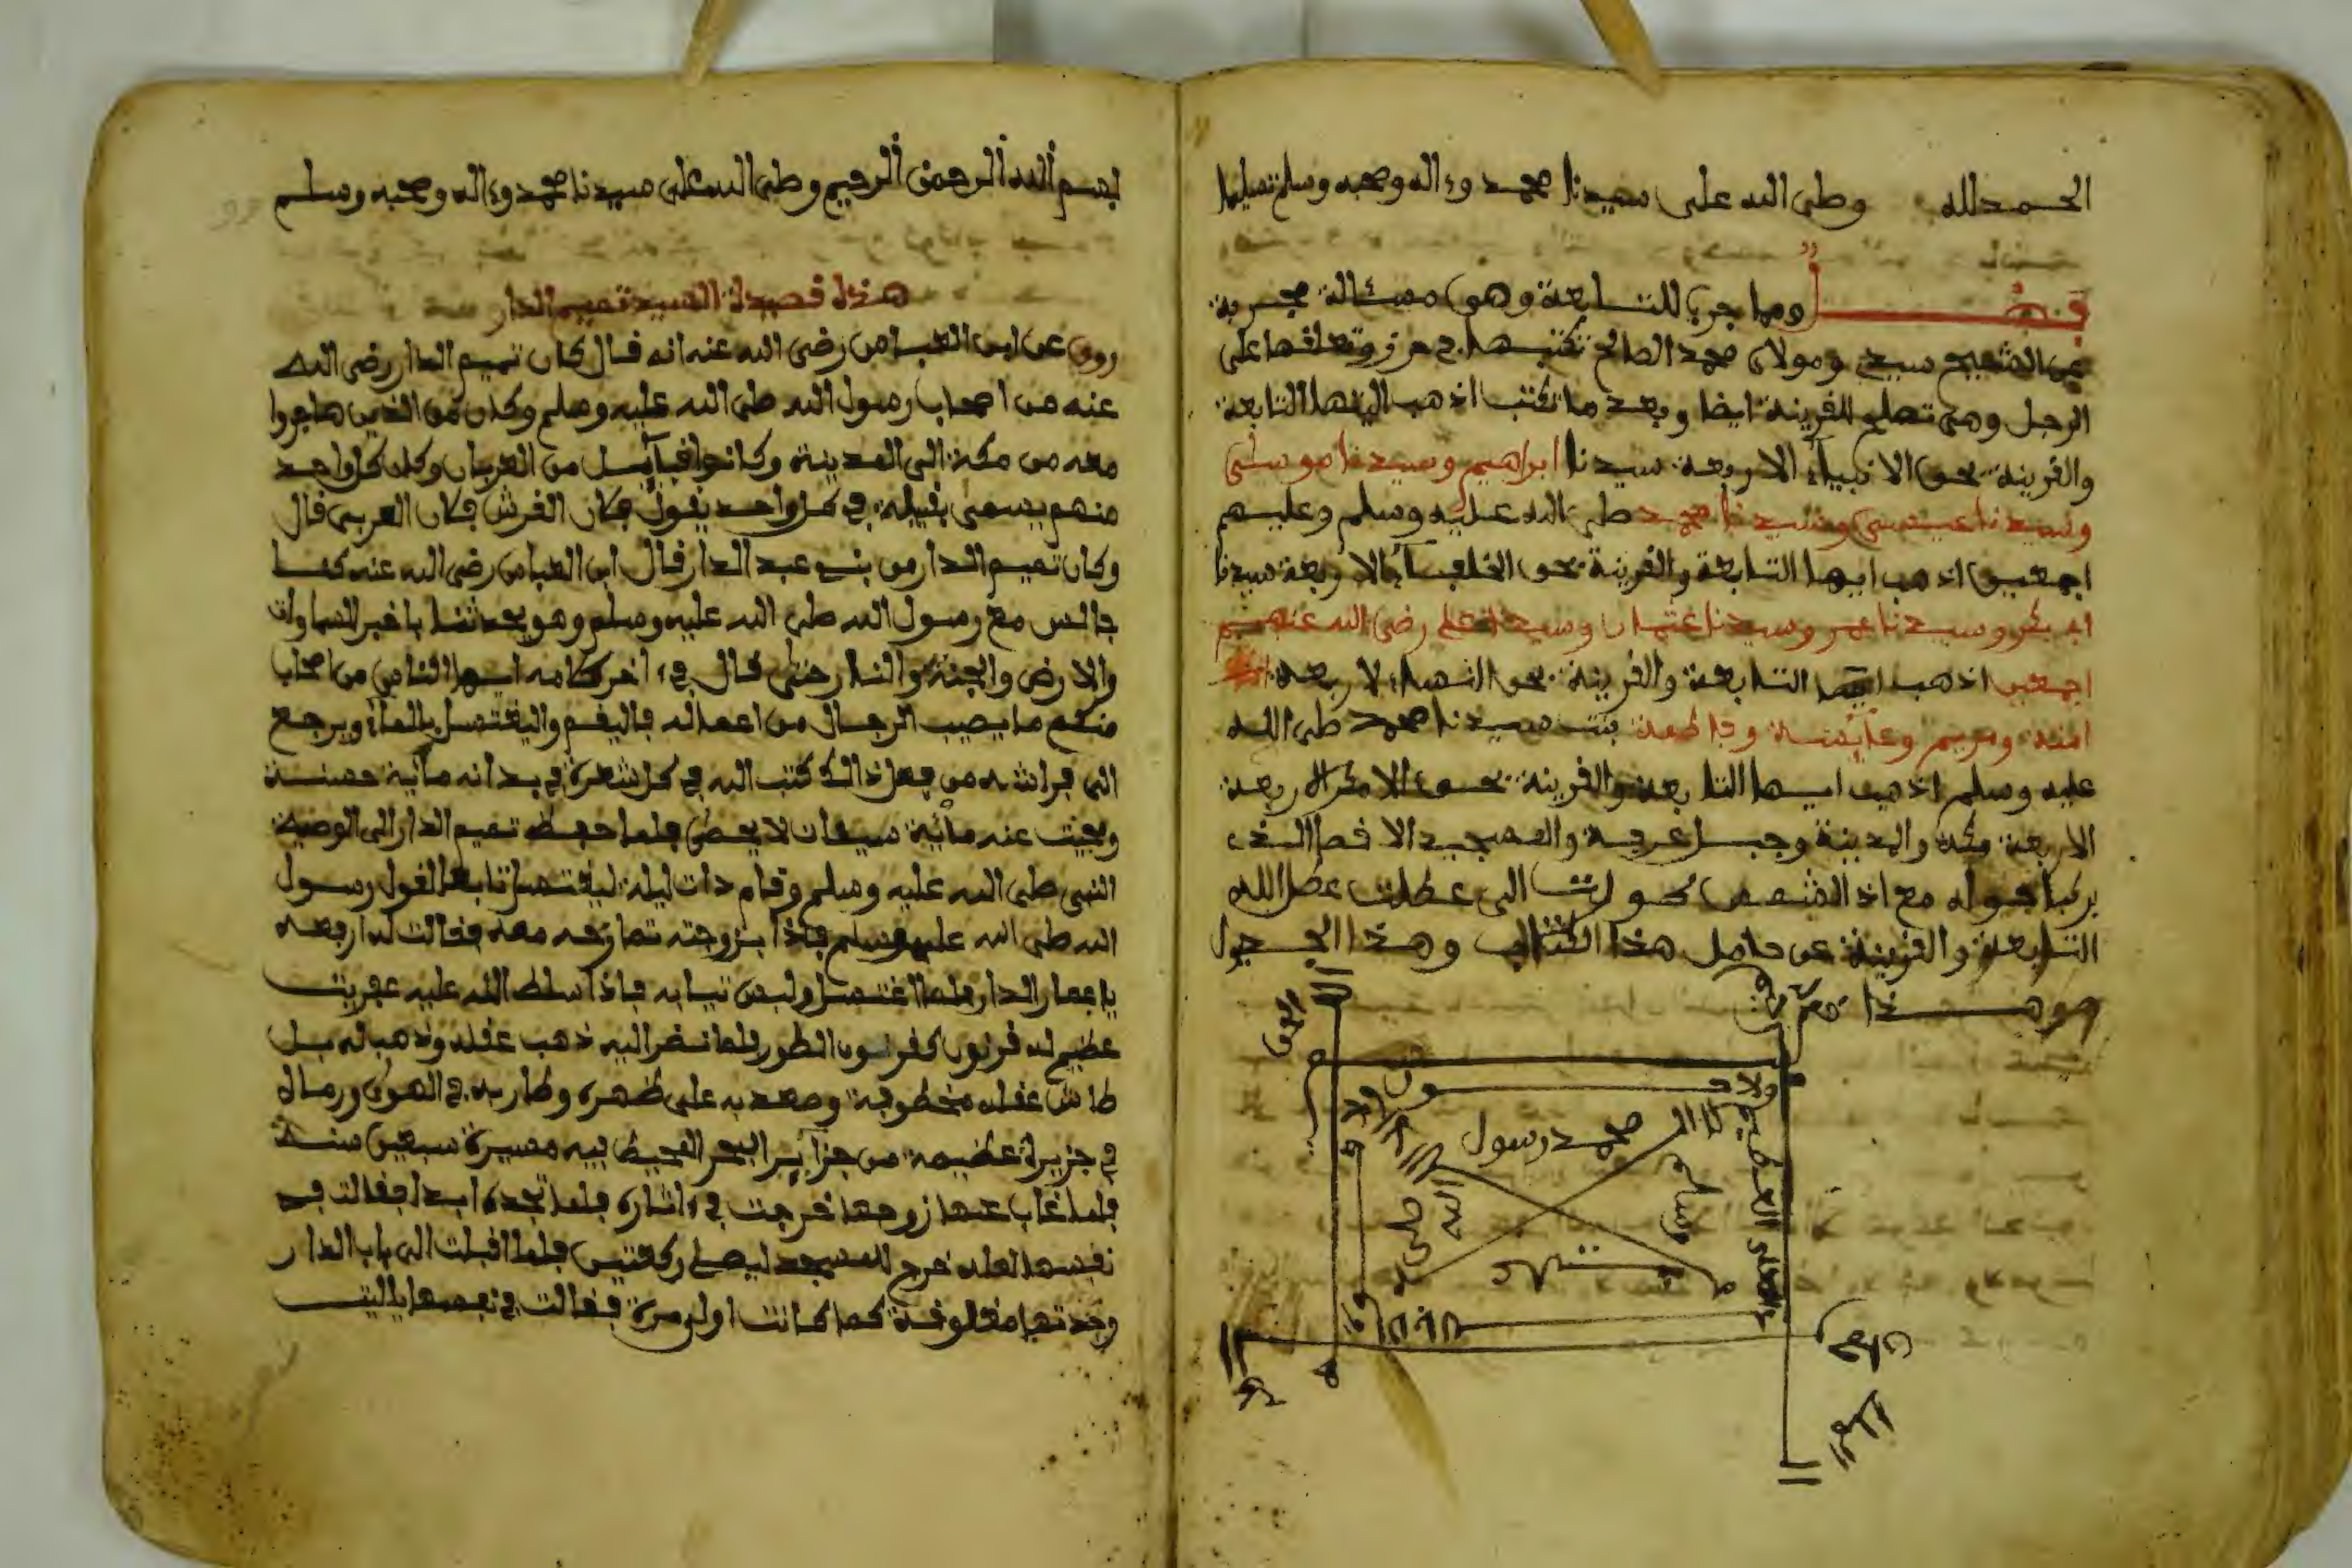 الحمد لله وصلى الله على سيدنا محمد وءاله وصحبه وسلم تسليما
فصل ومما جرب للتابعة وهي مسئالة مجربة
عن الشيخ سيدي ومولاي محمد الصالح تكتبها في حرز وتعلقها على
الرجل وهي تصلح للقرينة ايضا وبعد ما تكتب اذهب ايتها التابعة
والقرينة بحق الانبياء الاربعة سيدنا ابراهيم وسيدنا موسى
وسيدنا عيسى وسيدنا محمد صلى الله عليه وسلم وعليهم
اجمعين اذهب ايها التابعة والقرينة بحق الخلفاء الاربعة سيدنا
ابي بكر وسيدنا عمر وسيدنا عثمان وسيدنا علي رضي الله عنهم
اجمعين اذهب ايها التابعة والقرينة بحق النساء الاربعة
امنة ومريم وعائشة وفاطمة بنت سيدنا محمد صلى الله
عليه وسلم اذهب ايها التابعة والقرينة بحق
الاربعة مكة والمدينة وجبل عرفة والمسجد الاقصا الذي
بركنا حوله
التابعة والقرينة عن حامل هذا الكتاب وهذا الجدول
وهذا
ولا حول
محمد رسول
الله
صلى
وسلم
العلي العظيم
بسم الله الرحمن الرحيم وصلى الله على سيدنا محمد وءاله وصحبه وسلم
هذا قصيدة السيد تميم الدار
روي عن ابن العباس رضي الله عنه انه قال كان تميم الدار رضي الله
عنه من اصحاب رسول الله صلى الله عليه وسلم وكان من الذين هاجروا
معه من مكة الى المدينة وكانوا قبآيل من العربان وكان كل واحد
منهم يسمى بقبيلة في كل واحد يقول فكان القرش فكان العربي قال
وكان تميم الدار من بني عبد الدار قال ابن العباس رضي الله عنه كنا
جالس مع رسول الله صلى الله عليه وسلم وهو يحدثنا باخبر السماوات
والارض والجنة والنار حتى قال في ءاخر كلامه ايها الناس من اصاب
منكم ما يصيب الرجال من اعماله فاليقم واليغتسل بالمآء ويرجع
الى فراشه من فعل ذالك كتب الله في كل شعرة في بدانه مآية حسنة
ومحيت عنه مآئة سيئات لا يحصى فلما حفظ تميم الدار الى الوصية
النبي صلى الله عليه وسلم وقام ذات ليلة ليغتسل تابعا لقول رسول
الله صلى الله عليه وسلم فاذا بزوجته تمازحه معه فقالت له ارفعه
يا عمار الدار فلما اغتسل ولبس تيابه فاذا سلط الله عليه عفريت
عظيم له قرنون كقرنون الطور فلما نضر اليه ذهب عقله وذهب له بل
طاش عقله مخطوفة وصعد به على ظهره وطار به في الهوى ورماه
في جزيرة عظيمة من جزآير البحر المحيط فيه مسيرة سبعين سنة
فلما غاب عنها زوجها خرجت في ءاثاره فلما تجده ابدا فقالت في
نفسها لعله خرج للمسجد ليصلي ركعتين فلما اقبلت الى باب الدار
وجدتها مغلوقة كما كانت اول مرة فقالت في نفسها يا ليت